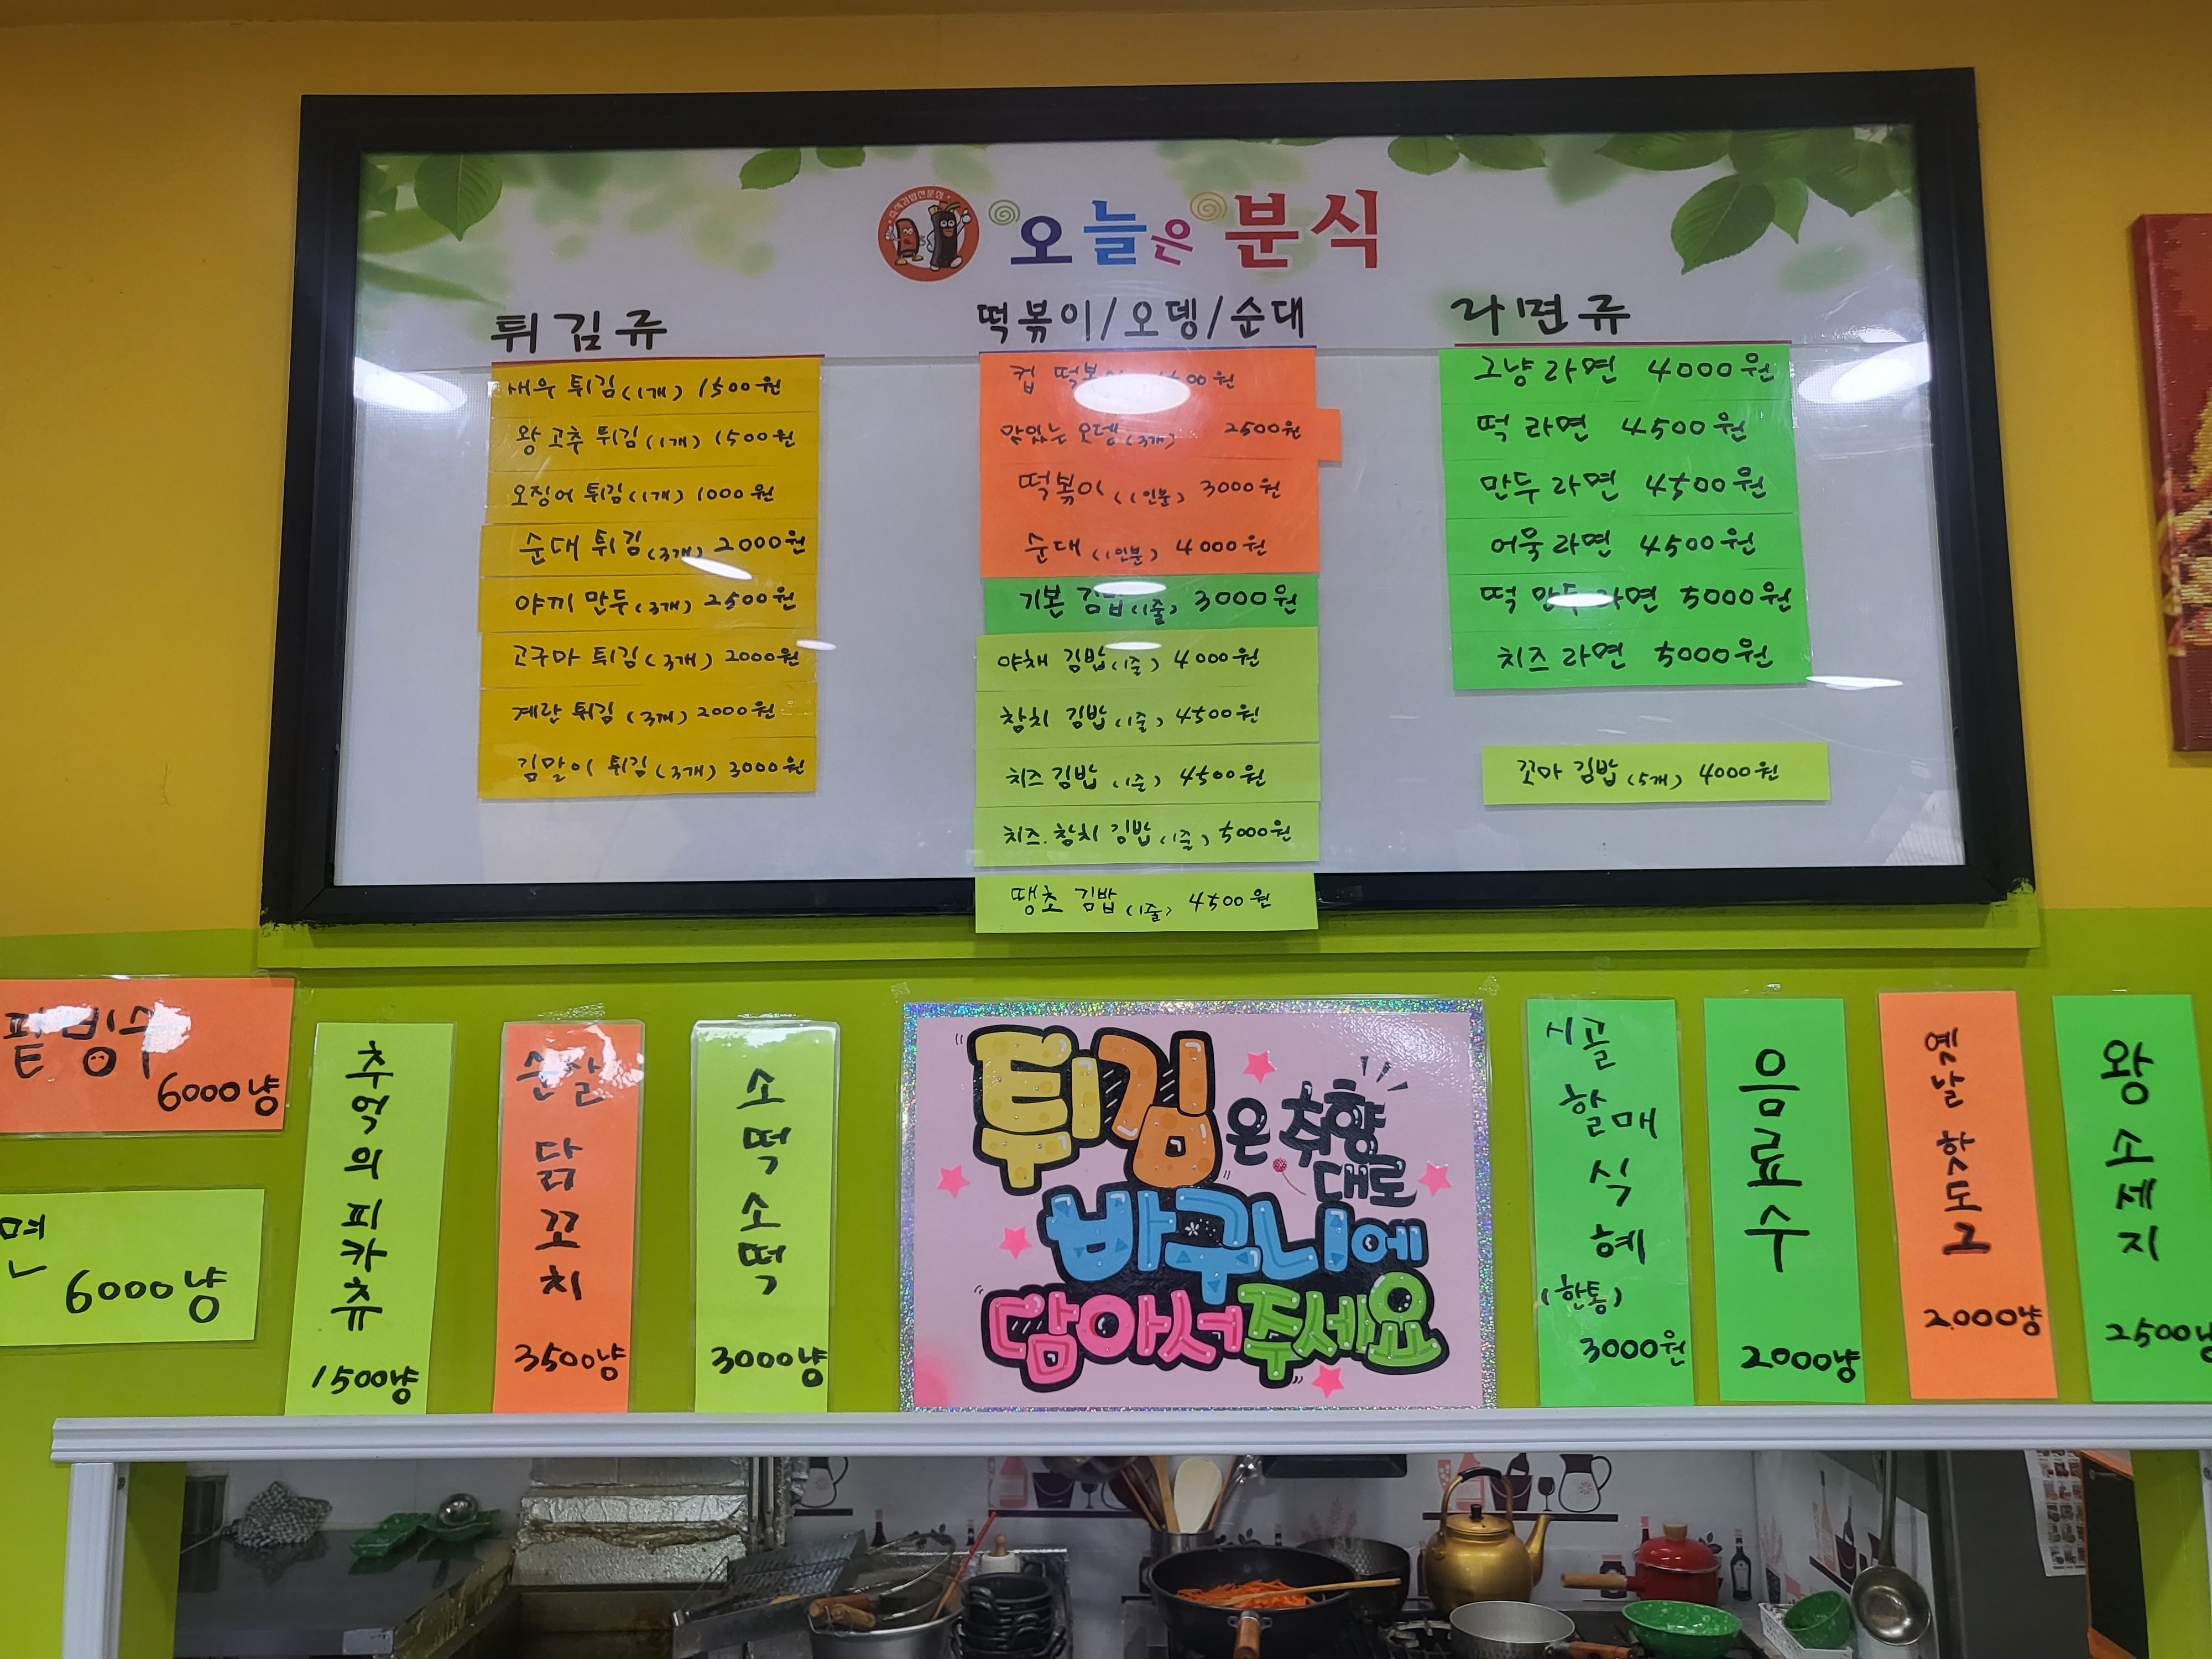 오늘은 분식
튀김류
새우 튀김(1개) 1500원
왕고추 튀김(1개) 1500원
오징어 튀김(1개) 1000원
순대 튀김(3개) 2000원
야끼 만두(3개) 2500원
고구마 튀김(3개) 2000원
계란 튀김(3개) 2000원
김말이 튀김(3개) 3000원
떡볶이/오뎅/순대
컵 떡볶이
맛있는 오뎅(3개) 2500원
떡볶이(1인분) 3000원
순대(1인분) 4000원
기본 김밥(1줄) 3000원
야채 김밥(1줄) 4000원
참치 김밥(1줄) 4500원
치즈 김밥(1줄) 4500원
치즈.참치 김밥(1줄) 5000원
땡초 김밥(1줄) 4500원
라면류
그냥 라면 4000원
떡 라면 4500원
만두 라면 4500원
어묵 라면 4500원
떡 만두 라면 5000원
치즈 라면 5000원
꼬마 김밥(5개) 4000원
팥빙수
6000냥
면
6000냥
추억의 피카츄
1500냥
순살 닭꼬치
3500냥
소떡소떡
3000냥
튀김은 취향
대로
바구니에
담아서주세요
시골
할매
식
혜
(한통)
3000원
음료수
2000냥
옛날 핫도그
2.000냥
왕소세지
2500냥